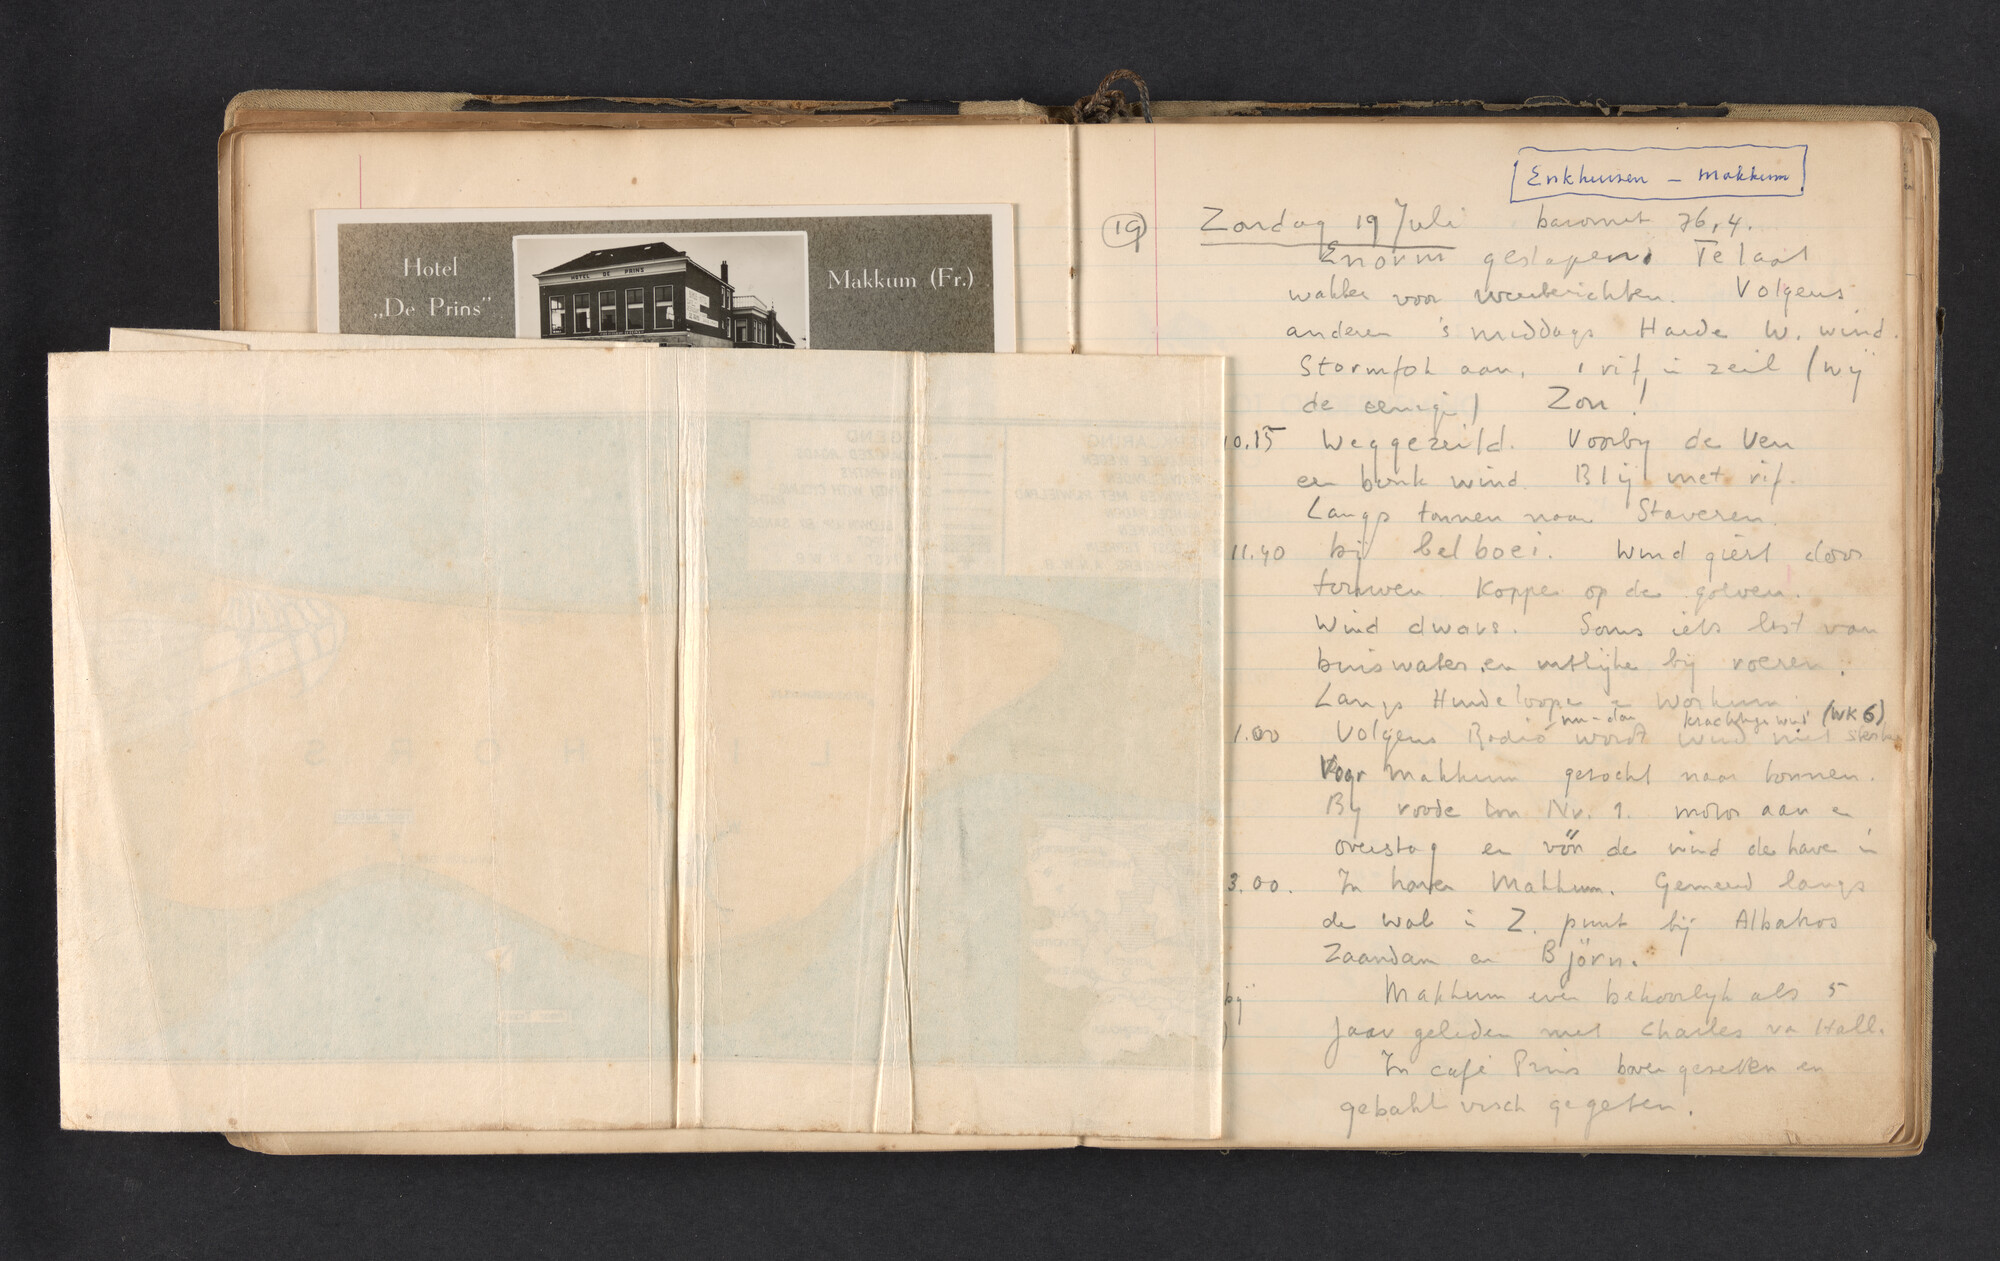 Hotel
„De Prins”
HOTEL DE PRINS
Makkum (Fr.)
Enkhuisen – Makkum
19
Zondag 19 Juli baromet 76,4.
Enorm geslapen. Te laat
wakker voor weerberichten. Volgens
anderen 's middags Harde W. wind.
Stormfok aan, 1 rif in zeil (wij
de eenige) Zon!
10.15 Weggezeild. Voorby de Ven
een bonk wind. Blij met rif.
Langs tonnen naar Staveren.
11.40 bij belboei. Wind giert door
touwen. Koppen op de golven.
Wind dwars. Soms iets last van
buiswater en
bij
Langs Hindeloopen en Workum
nu – dan krachtige wind (WK 6)
1.00 Volgens Radio wordt wind niet sterker
Voor Makkum gezocht naar tonnen.
By roode ton Nr. 1. motor aan en
overstag en vóór de wind de haven in
3.00. In haven Makkum. Gemeerd langs
de wal in Z. punt bij Albatros
Zaandam en Björn.
bij
Makkum even behoorlijk als 5
Jaar geleden met Charles va Hall.
In café Prins boven gezeten en
gebakt visch gegeten.
LEGEND
VERKLARING